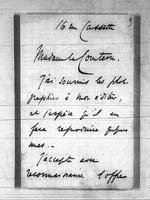 3
16 rue Cassette
Madame la Comtesse,
J'ai soumis les photo-
graphies à mon éditeur,
et j'espère qu'il en
fera reproduire quelques
unes.
J'accepte avec
reconnaissance l'offre